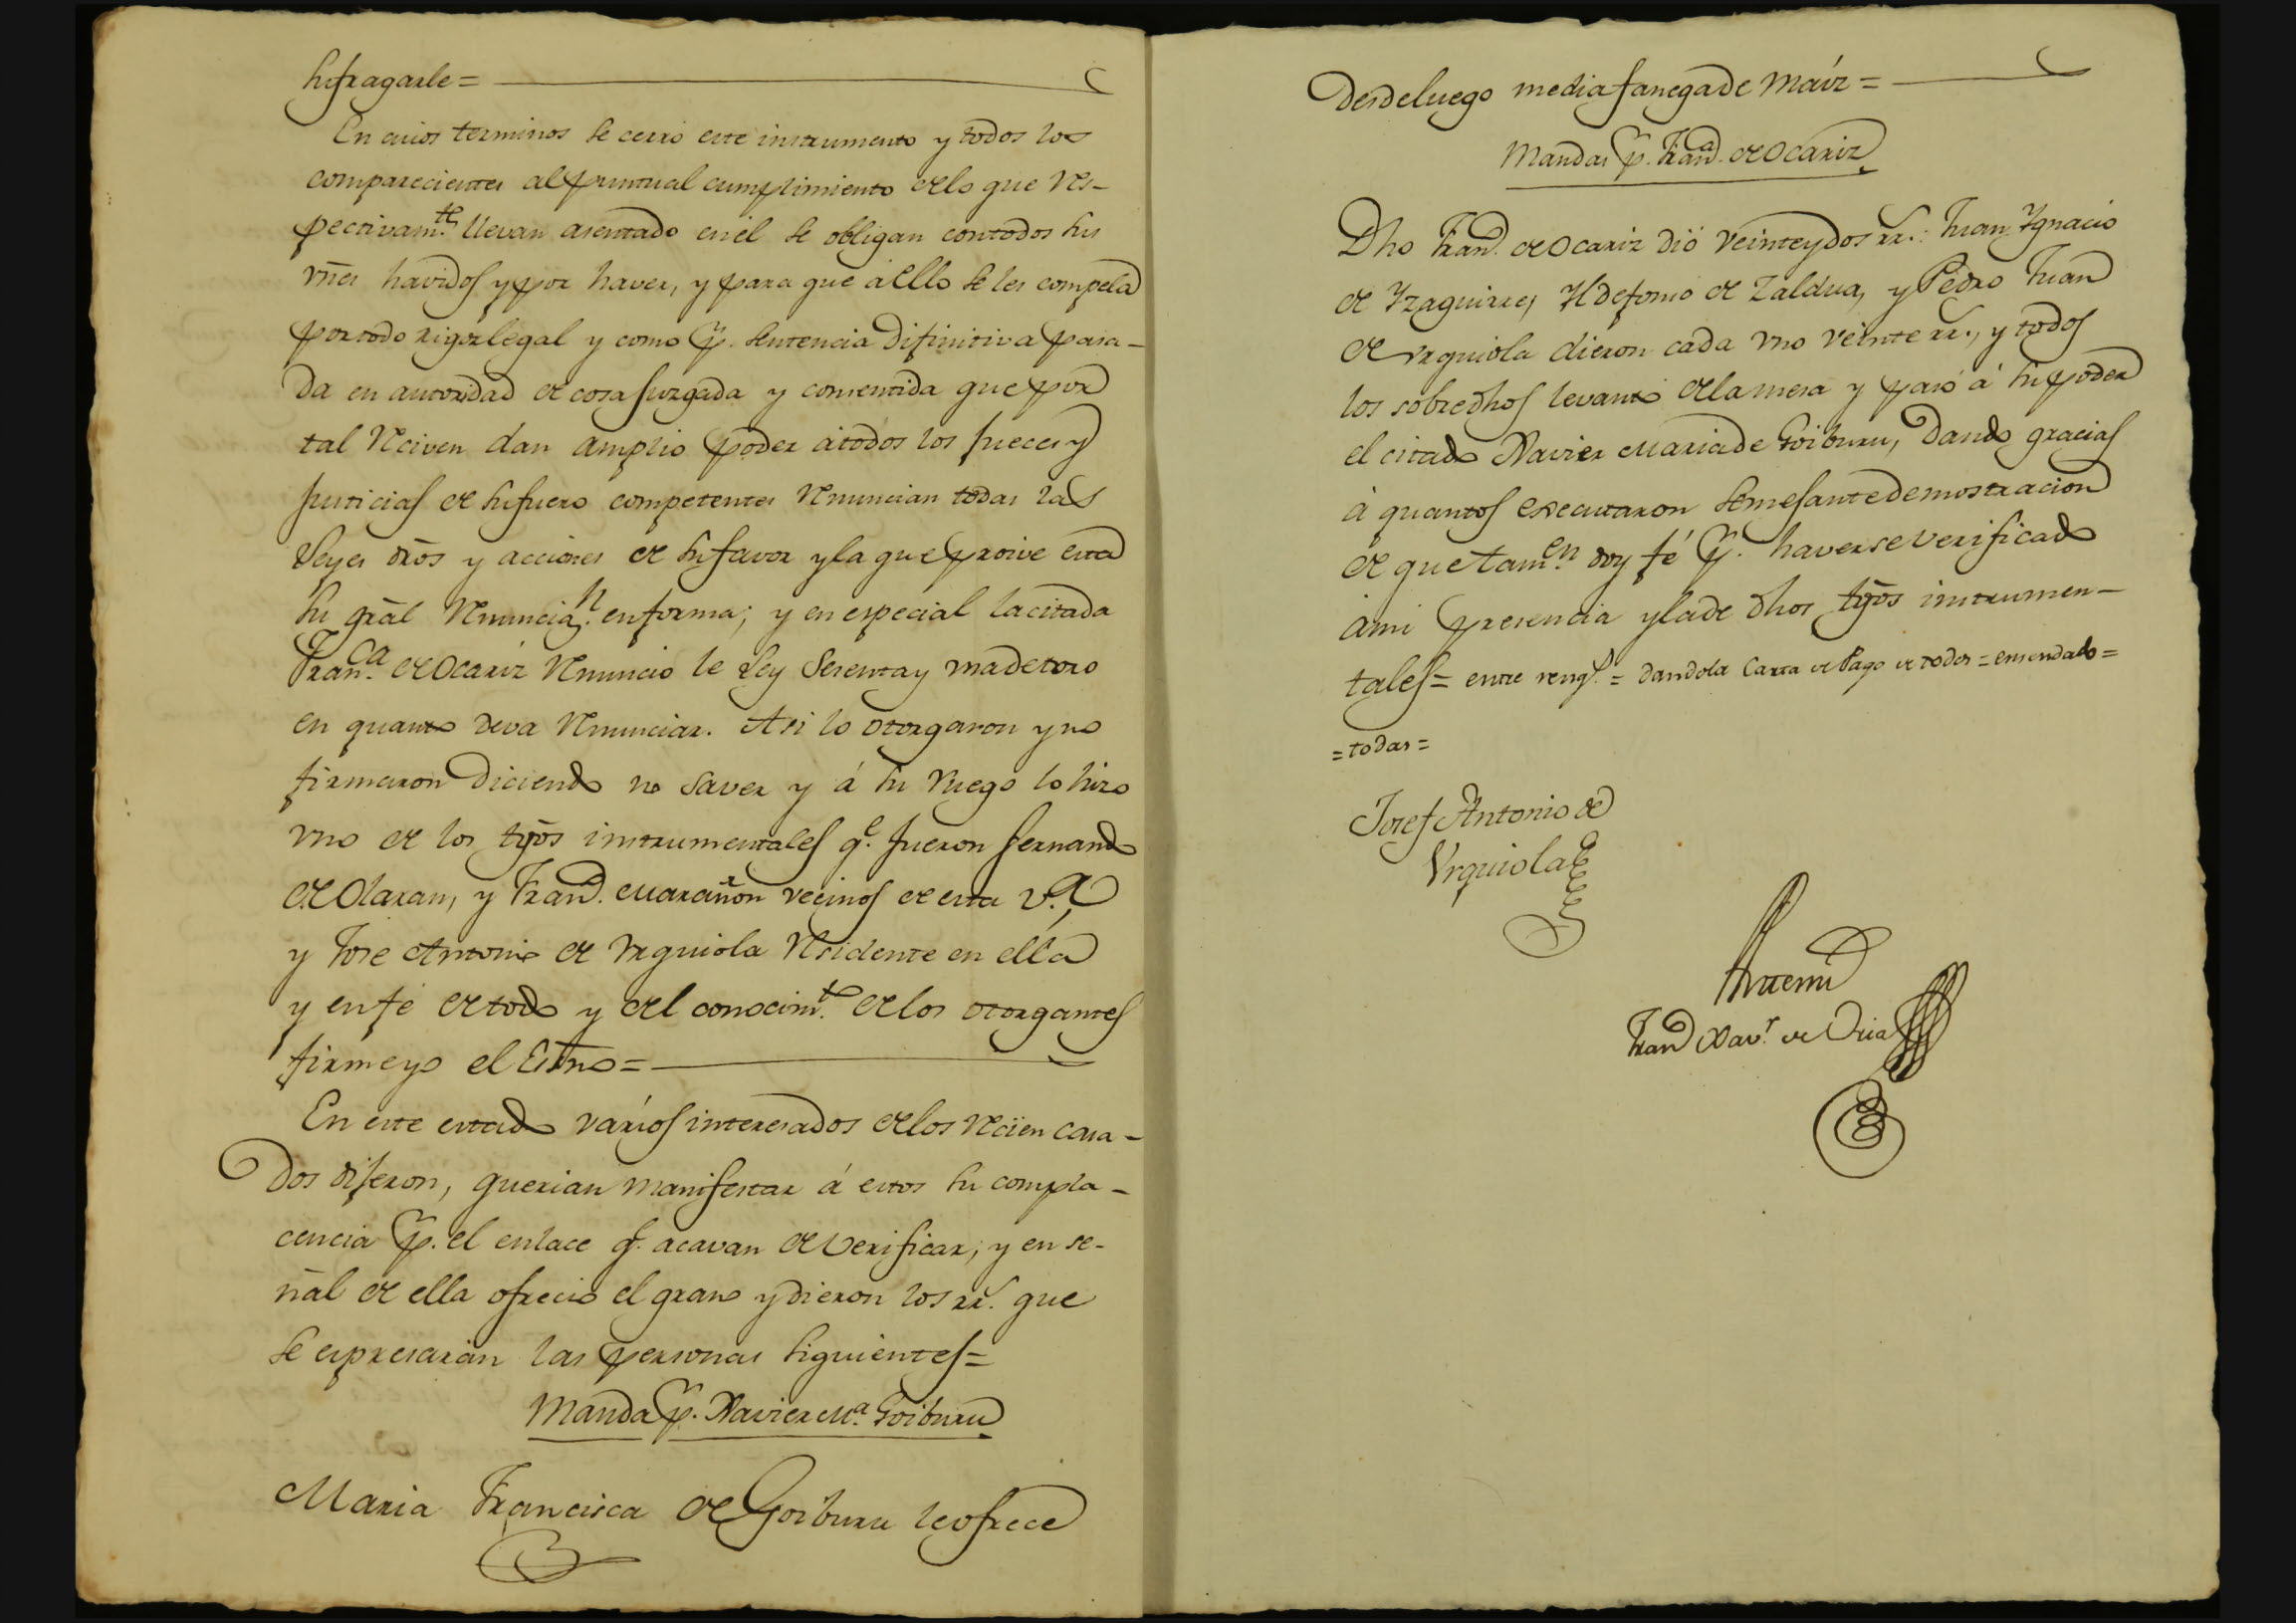 sufragarle=
En cuios terminos se cerró este instrumento y todos los
comparecientes al puntual cumplimiento de lo que res-
pectivam.te llevan asentado en el se obligan con todos sus
vnẽs havidos y por haver, y para que á ello se les compela
por todo rigor legal y como p.r sentencia difinitiva pasa-
da en autoridad de cosa juzgada y consentida que por
tal reciven dan amplio poder á todos los jueces y
justicias de su fuero competentes renuncian todas las
Leyes drõs y acciones de su favor y la que proive esta
su grãl renuncia.n en forma; y en especial la citada
Fran.ca de Ocariz renunció le Ley Sesenta y una de toro
en quanto deva renunciar. Asi lo otorgaron y no
firmaron diciendo no saver y á su ruego lo hizo
vno de los tgõs instrumentales q.e fueron Fernando
de Olaran, y Fran.co Marañon vecinos de esta v.a,
y Jose Antonio de Vrquiola residente en ella
y en fé de todo y del conocim.to de los otorgantes
firme yo el Essno=
En este estado varios interesados de los recien casa-
dos dijeron, querian manifestar á estos su compla-
cencia p.r el enlace q.e acavan de verificar; y en se-
ñal de ella ofreció el grano y dieron los rr.s que
se expresarán las personas siguientes=
Manda p.r Xavier M.a Goiburu
Maria Francisca de Goiburu le ofrece
desde luego media fanega de Maíz=
Mandas p.r Fran.ca de Ocariz
Dho Fran.co de Ocariz dió veinte y dos rr.s: Juan Ygnacio
de Yzaguirre, Yldefonso de Zaldua, y Pedro Juan
de Vrquiola dieron cada vno veinte rr.s, y todos
los sobredhos levantó de la mesa y pasó á su poder
el citado Xavier Maria de Goiburu, dando gracias
á quantos executaron semejante demostracion
de que tam.en doy fé p.r haverse verificado
á mi presencia y la de dhos tgõs instrumen-
tales= entre reng.s = dandola Carta de Pago de todos = enmendado=
=todas=
Josef Antonio de
Vrquiola
Antemi
Fran.co Xav.r de Oria